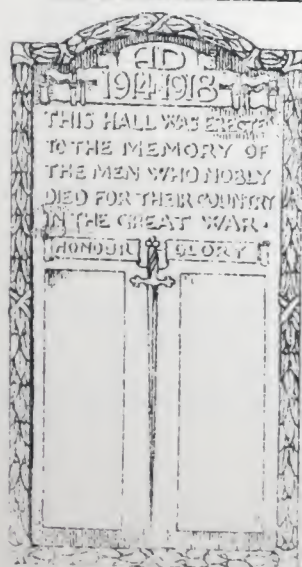 AD
1914-1918
THIS HALL WAS ERECTED
TO THE MEMORY OF
THE MEN WHO NOBLY
DIED FOR THEIR COUNTRY
IN THE GREAT WAR.
HONOUR GLORY